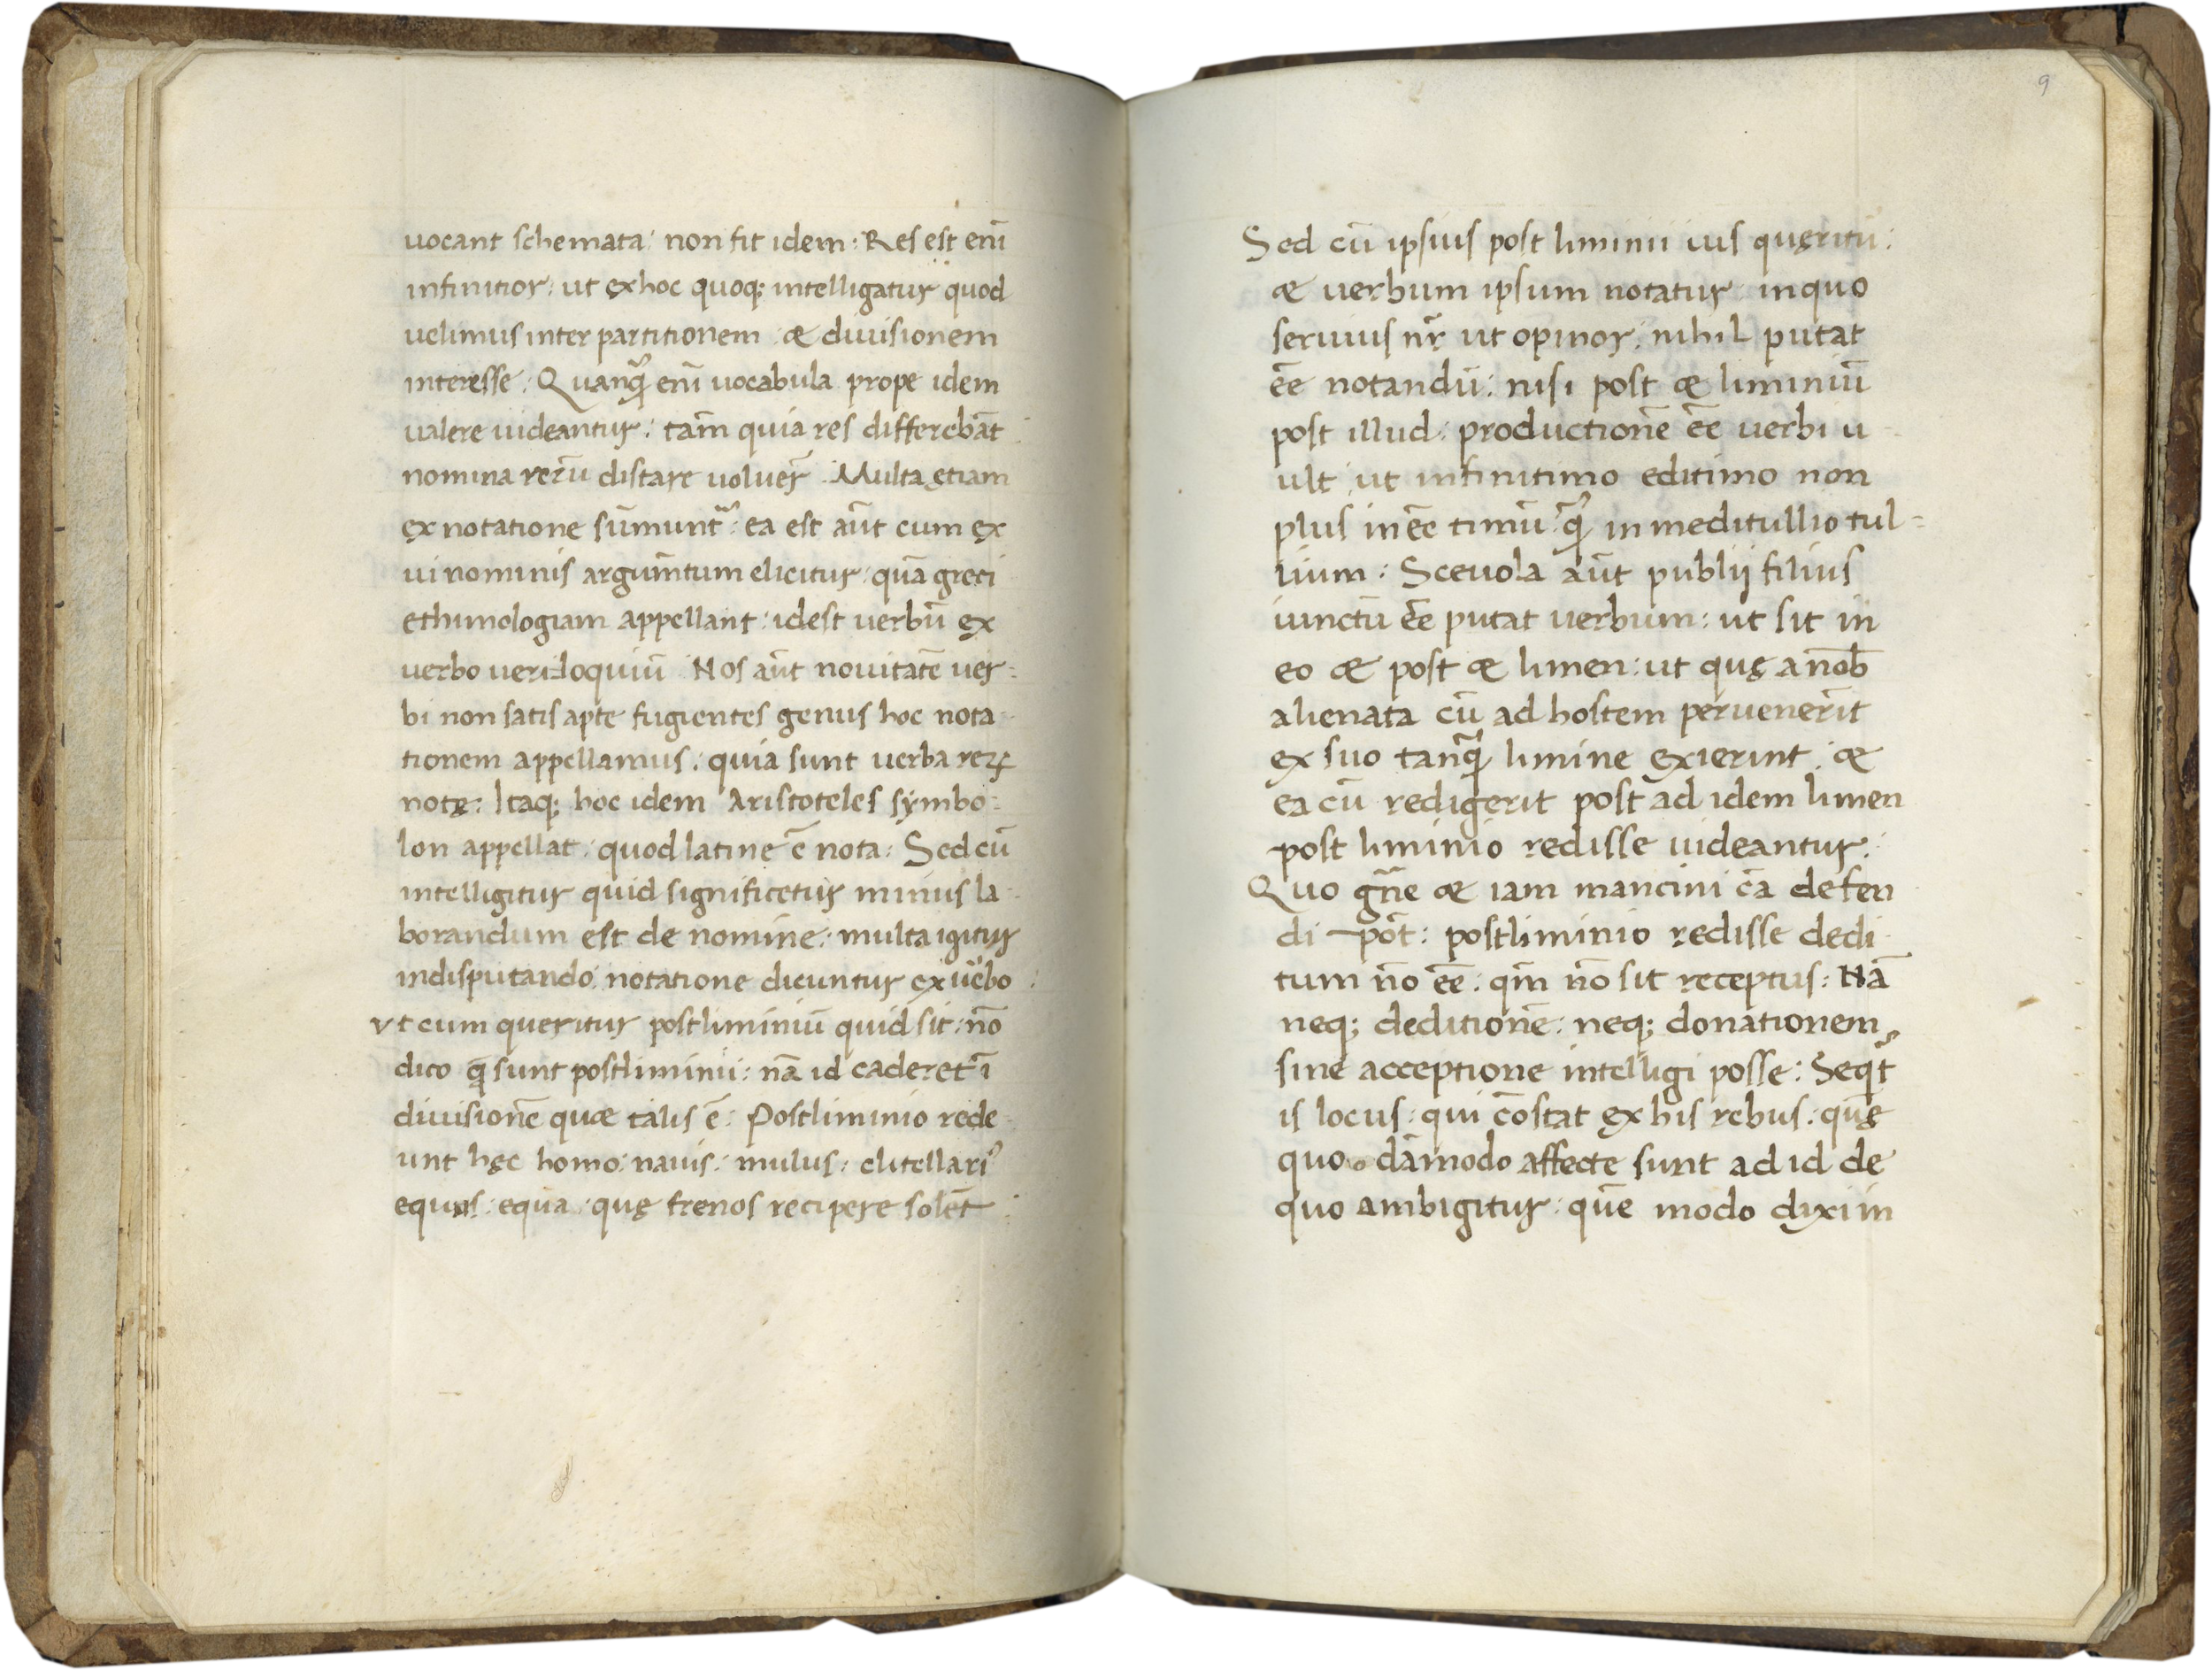 vocant schemata: non fit idem: Res est eni᷃
infinitior: ut ęx hoc quoq; intelligatur quod
uelimus inter partitionem æ diuisionem
interesse: Quanq̃ enĩ uocabula prope idem
ualere uideantur: tam̃ quia res differebãt
nomina rerũ distare voluer̃. Multa ętiam
ęx notatione sũmunt᷑: ea est aũt cum ęx
ui nominis argum̃tum elicitur: quã greci
ethimologiam appellant: idest uerbũ ęx
verbo veriloquiũ. Nos aũt nouitatẽ ver-
bi non satis apte fugientes genus hoc nota-
tionem appellamus: quia sunt uerba reꝝ
notę: Itaq; hoc idem Aristoteles sẏmbo-
lon appellat: quod latine ẽ nota: Sed cũ
intelligitur quid significetur minus la-
borandum est de nomine: multa igitur
in disputando notatione dicuntur ex ũbo:
vt cum queritur postliminiũ quid sit: nõ
dico q̃ sunt postliminii: nã id caderet ĩ
diuisionẽ quæ talis ẽ: Postliminio rede-
unt hęc homo: nauis: mulus: clitellariꝰ
equus: equa: quę frenos recipere solẽt:
9
Sed cũ ipsius post liminii ius quęritũ:
æ uerbum ipsum notatur: in quo
seruius nr̃ ut opinor: nihil putat
ẽe notandũ: nisi post æ liminiũ
post illud: productionẽ ẽe uerbi u-
ult ut infinitimo editimo non
plus inẽe timũ: q̃ in meditullio tul-
lium: Sceuola aũt publij filius
iunctũ ẽe putat uerbum: ut sit in
eo æ post æ limen: ut quę a nob̃
alienata cũ ad hostem peruener̃it
ex suo tanq̃ limine ęxierint: æ
ea cũ redigerit post ad idem limen
post liminio redisse uideantur:
Quo gñe æ iam mancini cã defen
di põt: postliminio redisse dedi-
tum nõ ẽe: qm̃ nõ sit receptus: Nã
neq; deditionẽ: neq; donationem
sine acceptione intelligi posse: Seqt᷑
is locus: qui cõstat ęx his rebus: quę
quo dãmodo affecte sunt ad id de
quo ambigitur: quẽ modo dixi in